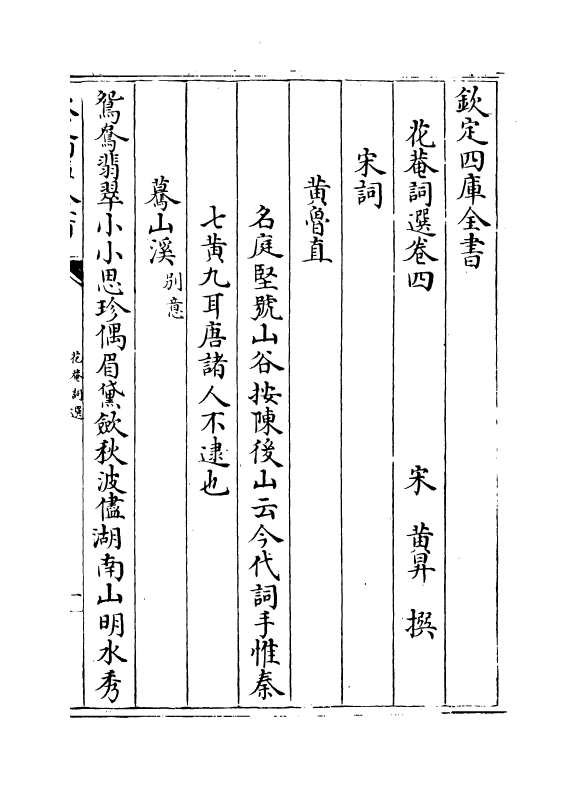 欽定四庫全書
花菴詞選卷四
宋　黃昇　撰
宋詞
黃魯直
名庭堅號山谷按陳後山云今代詞手惟秦
七黃九耳唐諸人不逮也
驀山溪 別意
鴛鴦翡翠小小思珍偶眉黛斂秋波儘湖南山明水秀
花菴詞選
一